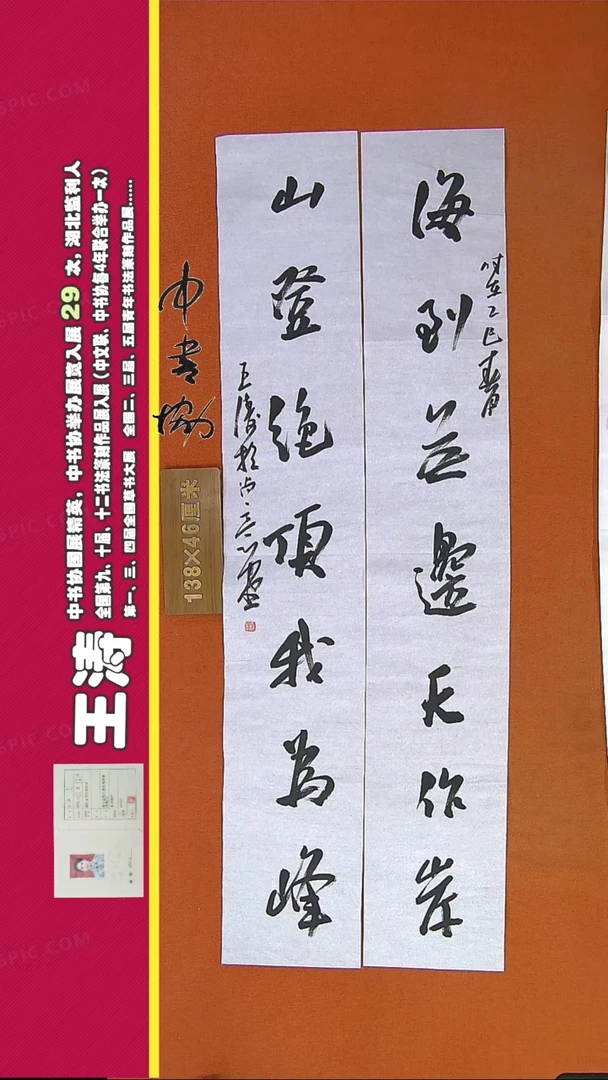 海到无邊天作岸
时在乙巳春月
山登绝顶我為峰
王涛於
中书协
138×46厘米
王涛
中书协国展精英，中书协举办展览入展 29 次，湖北监利人
全国第九、十届、十二书法篆刻作品展入展（中文联、中书协每4年联合举办一次）
第一、三、四届全国草书大展 全国二、三届、五届青年书法篆刻作品展......